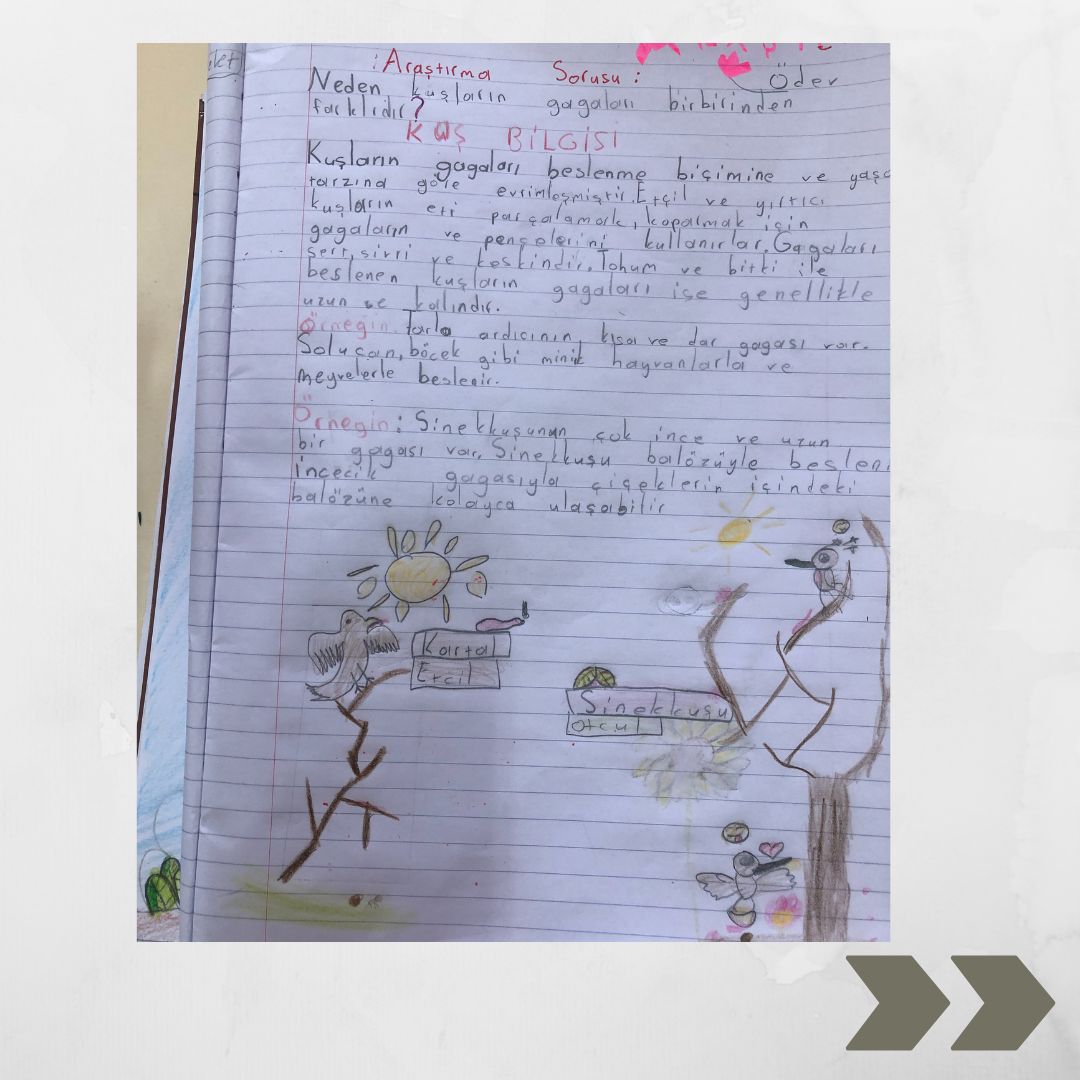 :Araştırma Sorusu: Ödev
Neden kuşların gagaları birbirinden
farklıdır?
KUŞ BİLGİSİ
Kuşların gagaları beslenme biçimine ve yaşa
tarzına göre evrimleşmiştir. Etçil ve yırtıcı
kuşların eti parçalamak, koparmak için
gagaların ve pençelerini kullanırlar. Gagaları
sert, sivri ve keskindir. Tohum ve bitki ile
beslenen kuşların gagaları ise genellikle
uzun ve kalındır.
Örnegin Tarla ardıcının kısa ve dar gagası var.
Solucan, böcek gibi minik hayvanlarla ve
meyvelerle beslenir.
Örnegin: Sinekkuşunun çok ince ve uzun
bir gagası var. Sinekkuşu balözüyle beslen
İncecik gagasıyla çiçeklerin içindeki
balözüne kolayca ulaşabilir
Kartal
Etçil
Sinekkuşu
Otcul